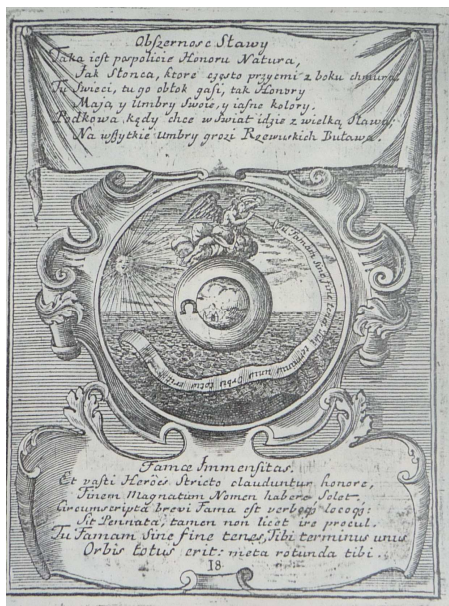 Obszernosc Sławy
Taka iest pospolicie Honoru Natura,
Jak Słonca, ktore często przyemi z boku chmura
Tu świeci, tu go obłok gasi, tak Honory
Maią y Umbry swoie, y iasne kolory.
Podkowa kędy chce w Swiat idzie z wielką Sławą,
Na wszytkie Umbry grozi Rzewuskich Buława.
Tu Famam sine fine tenes, tibi terminus unus Orbis totus erit
Famæ Immensitas.
Et vasti Heroes stricto clauduntur honore,
Finem Magnatum Nomen habere Solet.
Circumscripta brevi Fama est verboq; locoq;:
Sit Pennata, tamen non licet ire procul.
Tu Famam Sine fine tenes, Tibi terminus unus
Orbis totus erit: meta rotunda tibi.
18